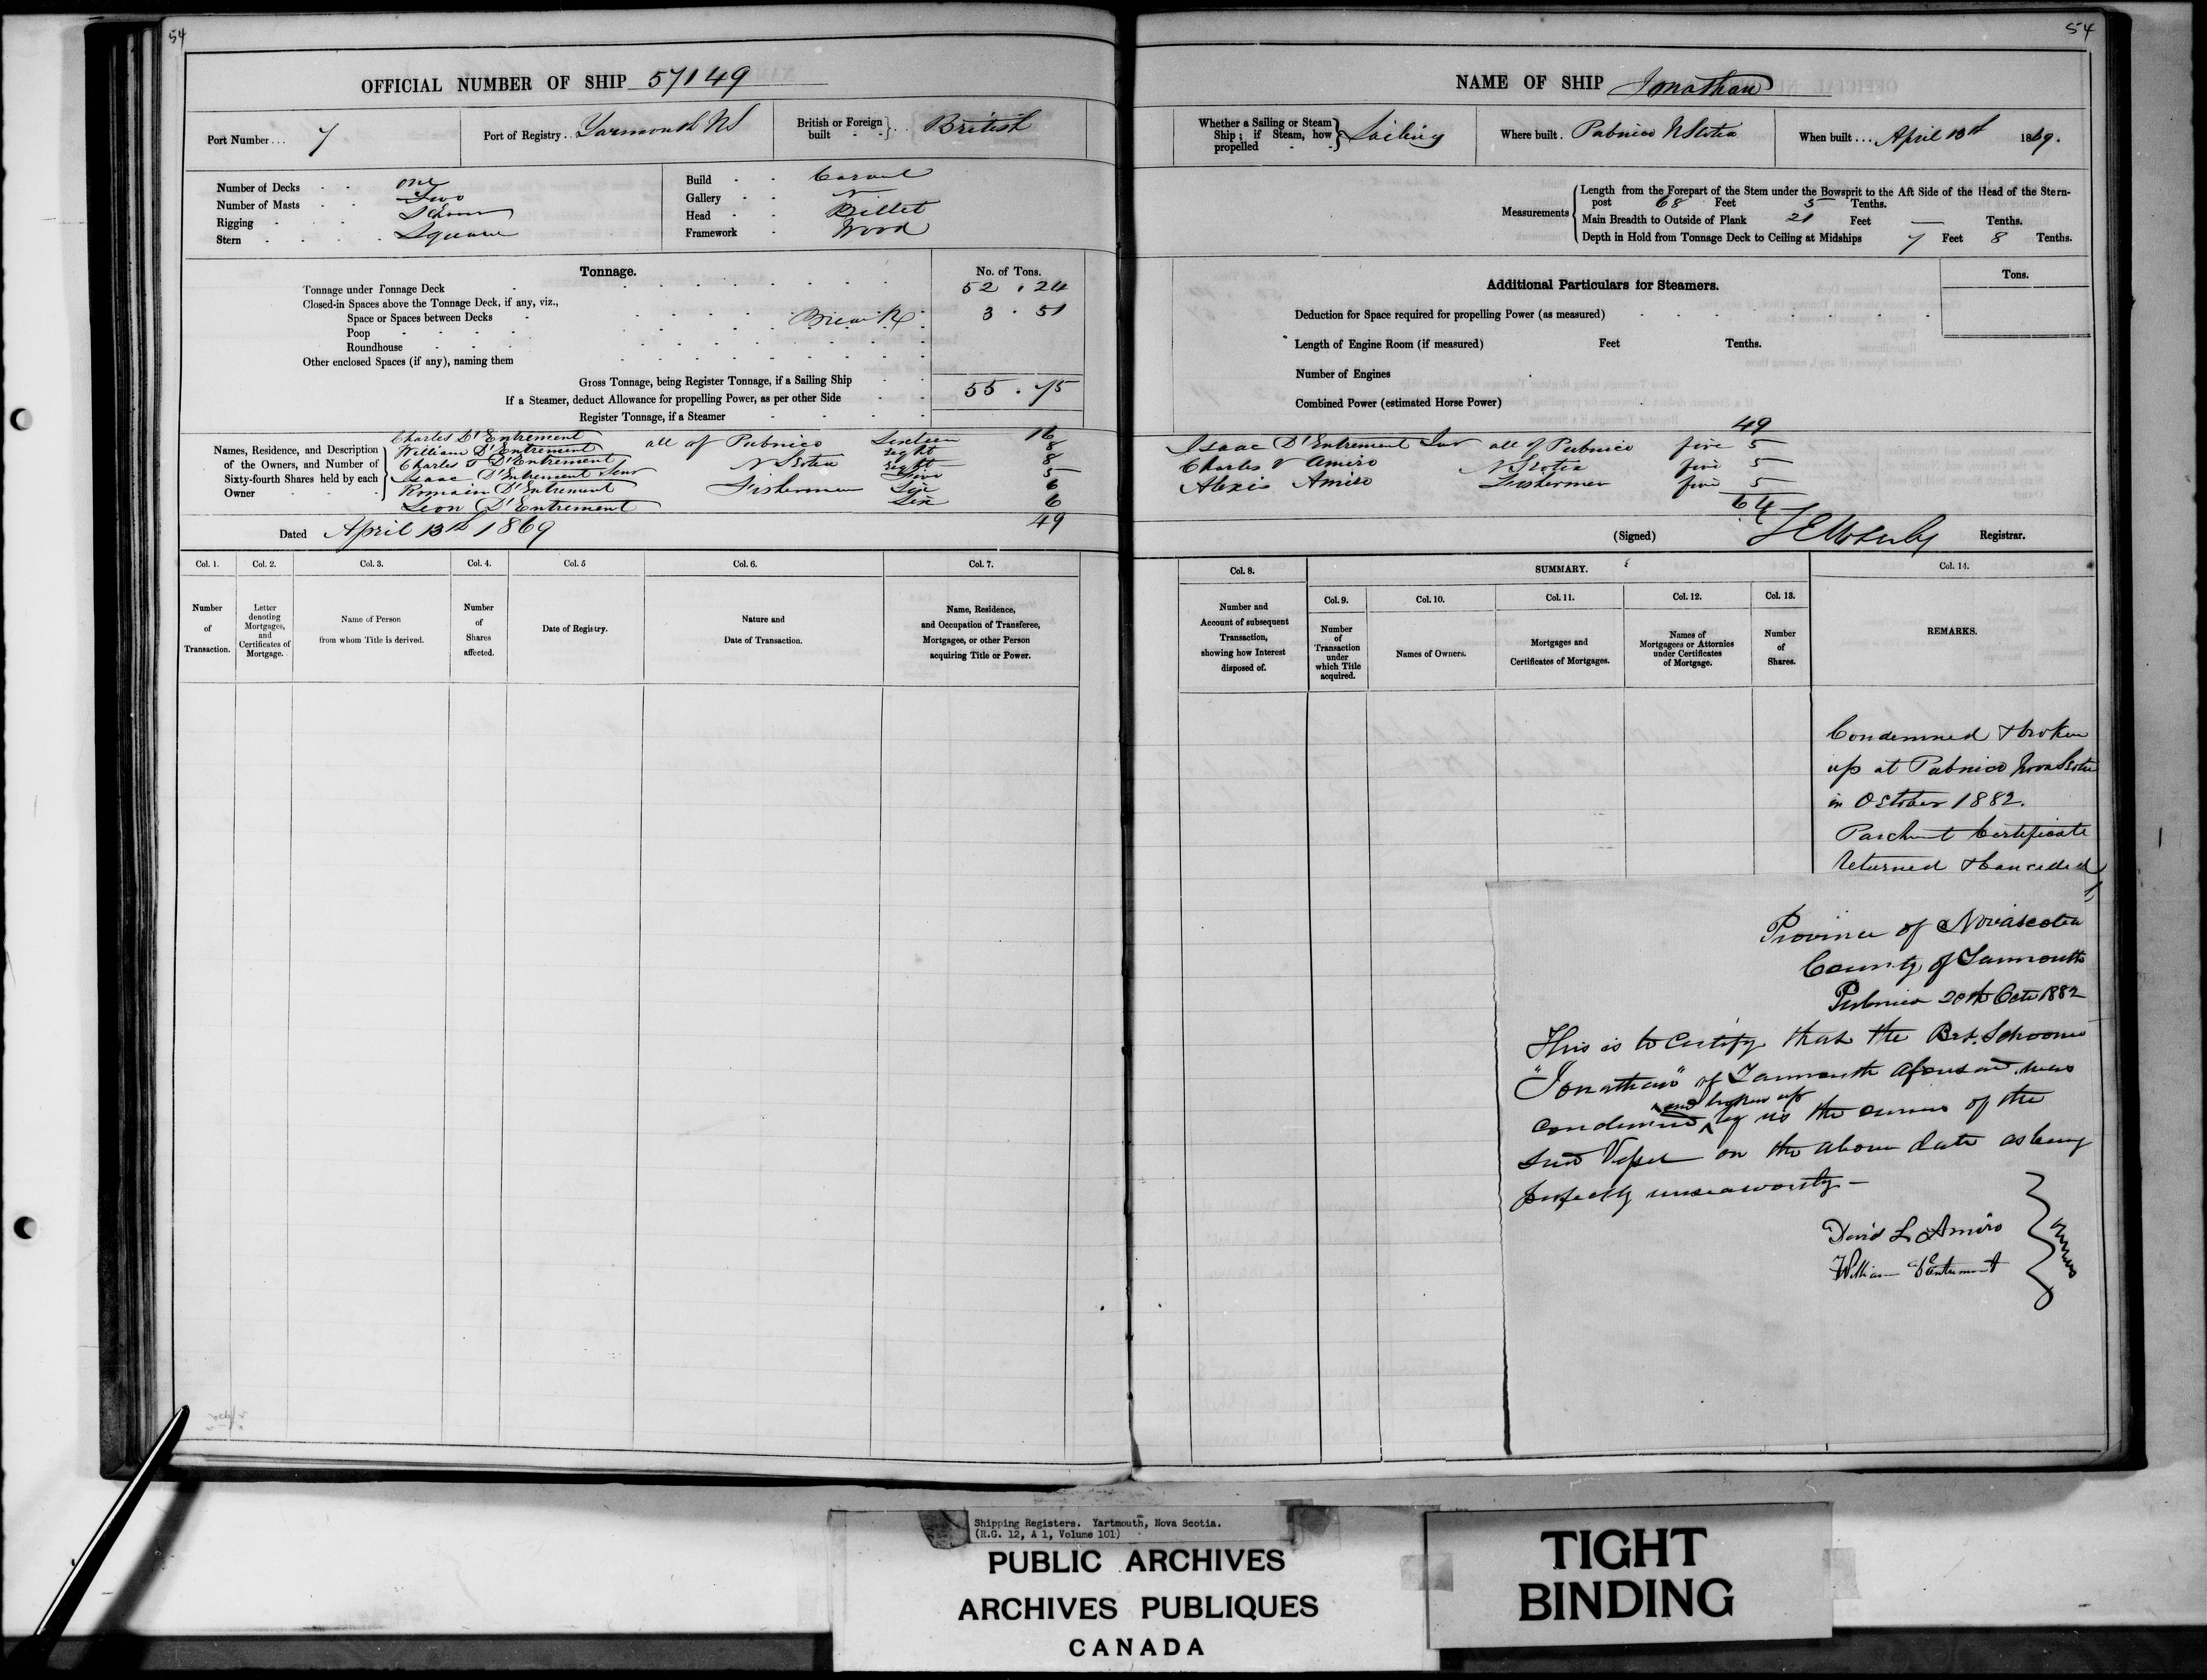 54
OFFICIAL NUMBER OF SHIP 57149
Port Number... 7
Port of Registry.. Yarmouth NS
British or Foreign built - - } .. British
Number of Decks - - one
Number of Masts - - Two
Rigging - - - Schnr
Stern - - - - Square
Build - - Carvel
Gallery - -
Head - - Billet
Framework - Wood
Tonnage.
No. of Tons.
Tonnage under Tonnage Deck 52 . 24
Closed-in Spaces above the Tonnage Deck, if any, viz.,
Space or Spaces between Decks Break 3 . 51
Poop
Roundhouse
Other enclosed Spaces (if any), naming them
Gross Tonnage, being Register Tonnage, if a Sailing Ship 55 . 75
If a Steamer, deduct Allowance for propelling Power, as per other Side
Register Tonnage, if a Steamer
Names, Residence, and Description of the Owners, and Number of Sixty-fourth Shares held by each Owner
Charles D'Entrement all of Pubnico Sixteen 16
William D'Entrement Eight 8
Charles T D'Entrement N Scotia Eight 8
Isaac D'Entrement Senr Five 5
Romain D'Entrement Fishermen Six 6
Leon D'Entrement Six 6
49
Dated April 13th 1869
Col. 1. Col. 2. Col. 3. Col. 4. Col. 5 Col. 6. Col. 7.
Number of Transaction.
Letter denoting Mortgages, and Certificates of Mortgage.
Name of Person from whom Title is derived.
Number of Shares affected.
Date of Registry.
Nature and Date of Transaction.
Name, Residence, and Occupation of Transferee, Mortgagee, or other Person acquiring Title or Power.
54
NAME OF SHIP Jonathan
Whether a Sailing or Steam Ship; if Steam, how propelled - - } Sailing
Where built. Pubnico N Scotia
When built... April 13th 1869.
Measurements
Length from the Forepart of the Stem under the Bowsprit to the Aft Side of the Head of the Stern-
post 68 Feet 5 Tenths.
Main Breadth to Outside of Plank 21 Feet — Tenths.
Depth in Hold from Tonnage Deck to Ceiling at Midships 7 Feet 8 Tenths.
Tons.
Additional Particulars for Steamers.
Deduction for Space required for propelling Power (as measured)
Length of Engine Room (if measured) Feet Tenths.
Number of Engines
Combined Power (estimated Horse Power)
49
Isaac D'Entrement Junr all of Pubnico five 5
Charles V Amiro N Scotia five 5
Alexis Amiro Fishermen five 5
64
(Signed) Registrar.
Col. 8. SUMMARY. Col. 14.
Col. 9. Col. 10. Col. 11. Col. 12. Col. 13.
Number and Account of subsequent Transaction, showing how Interest disposed of.
Number of Transaction under which Title acquired.
Names of Owners.
Mortgages and Certificates of Mortgages.
Names of Mortgagees or Attornies under Certificates of Mortgage.
Number of Shares.
REMARKS.
Condemned & broken
up at Pubnico Nova Scotia
in October 1882.
Parchmt Certificate
returned & Cancelled
Province of Novascotia
County of Yarmouth
Pubnico 20th Octr 1882
This is to Certify that the Brt. Schooner
"Jonathan" of Yarmouth aforesaid was
and broken up
condemned ^ by us the owners of the
said Vessel on the above date as being
perfectly unseaworthy —
David L Amiro
William D'Entremont
} owners
Shipping Registers. Yartmouth, Nova Scotia.
(R.G. 12, A 1, Volume 101)
PUBLIC ARCHIVES
ARCHIVES PUBLIQUES
CANADA
TIGHT
BINDING